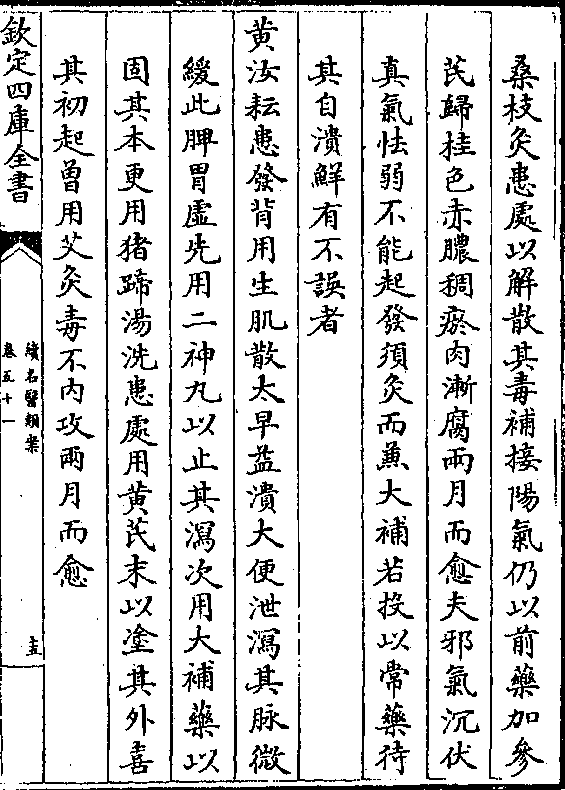 桑枝灸患處以解散其毒補接陽氣仍以前藥加參
芪歸桂色赤膿稠瘀肉漸腐兩月而愈夫邪氣沉伏
真氣怯弱不能起發須灸而兼大補若投以常藥待
其自潰鮮有不誤者
黄汝耘患發背用生肌散太早益潰大便泄瀉其脉微
緩此脾胃虚先用二神丸以止其瀉次用大補藥以
固其本更用猪蹄湯洗患處用黄芪末以塗其外喜
其初起曾用艾灸毒不内攻兩月而愈
欽定四庫全書
續名醫類案
卷五十一
十五